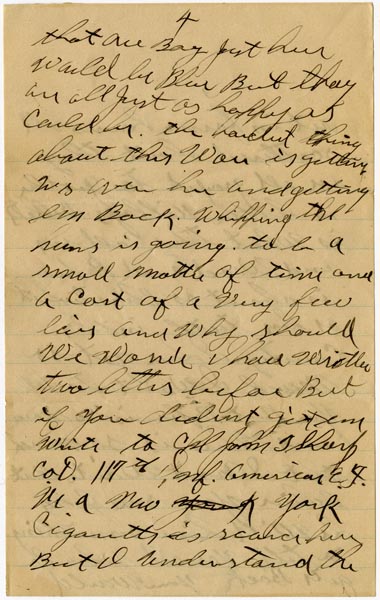 4
that are Boy just here
Would be Blue But they
are all just as happy as
Could be. the hardest thing
about this War is getting
us over her and getting
em Back. Whipping the
huns is going. to be a
small matter of time and
a Cost of a Very few
lives and Why should
We Worrie I have Wrotten
two letters before But
if You didint git em
Write to Cpl John I Sharp
Co D. 117th, inf. American E. F.
Via New York
Cigaretts is scarce her
But I understand the